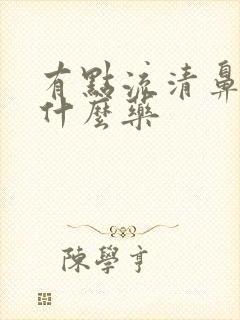 有點流清鼻
什麼藥
陳學亨